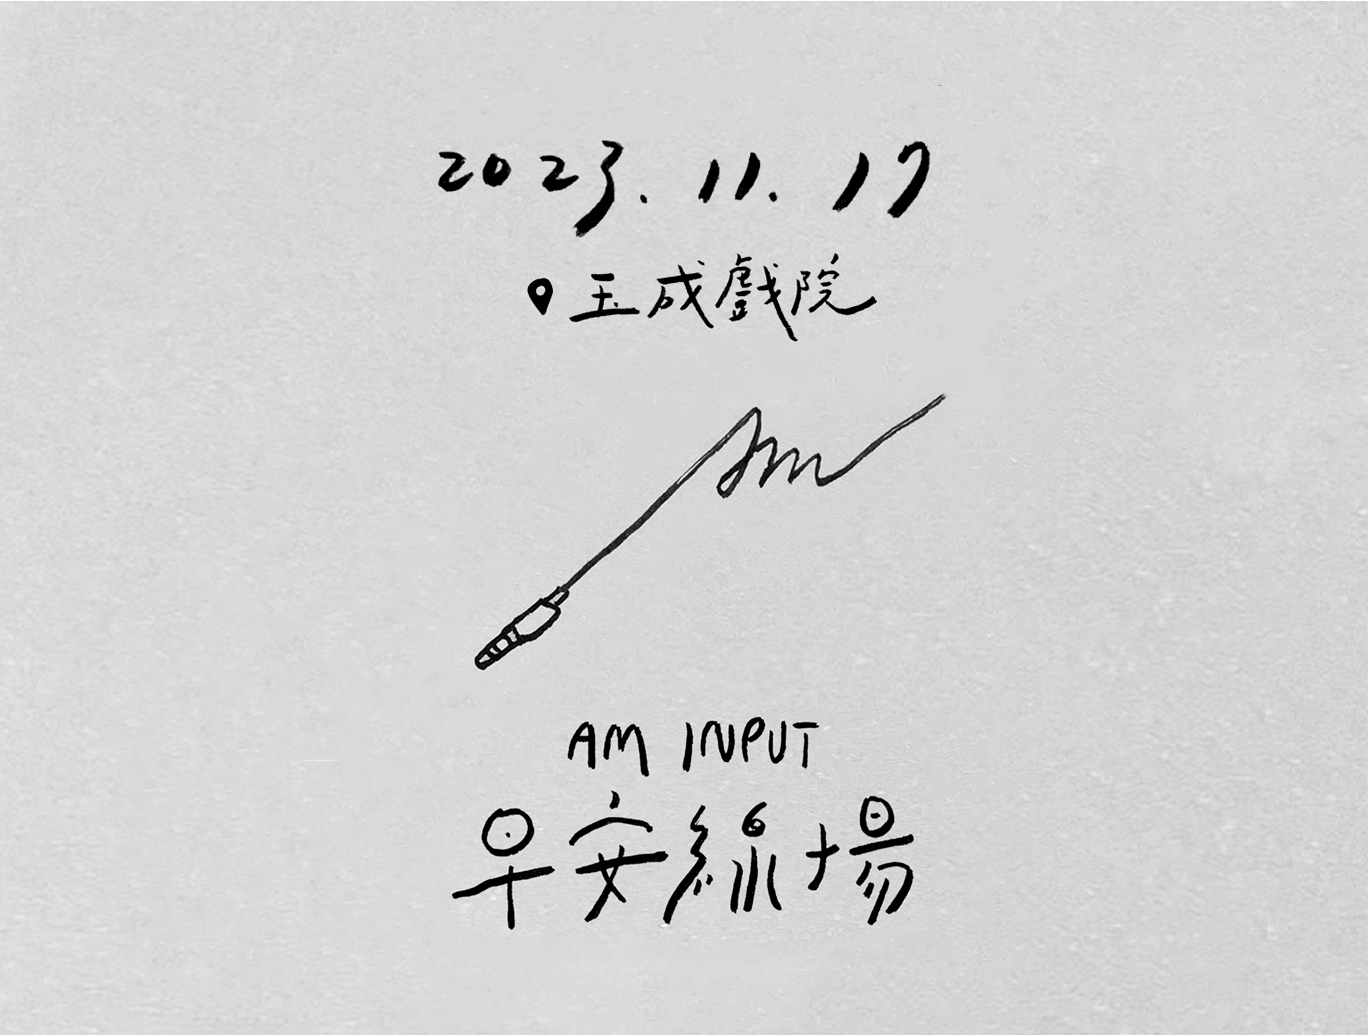 2023. 11. 17
玉成戲院
Am
AM INPUT
早安線場